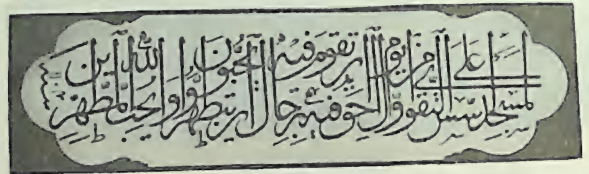 لمسجد اسس على التقوى من اول يوم احق ان تقوم فيه فيه رجال يحبون ان يتطهروا والله يحب المطهرين